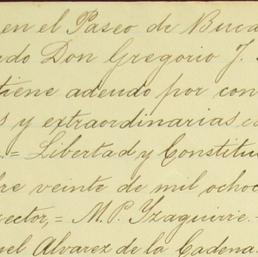 en el Paseo de Buca
do Don Gregorio J.
tiene adeudo por con
s y extraordinarias c
.= Libertad y Constitu
re veinte de mil ochoc
ector,= M. P. Yzaguirre.-
uel Alvarez de la Cadena